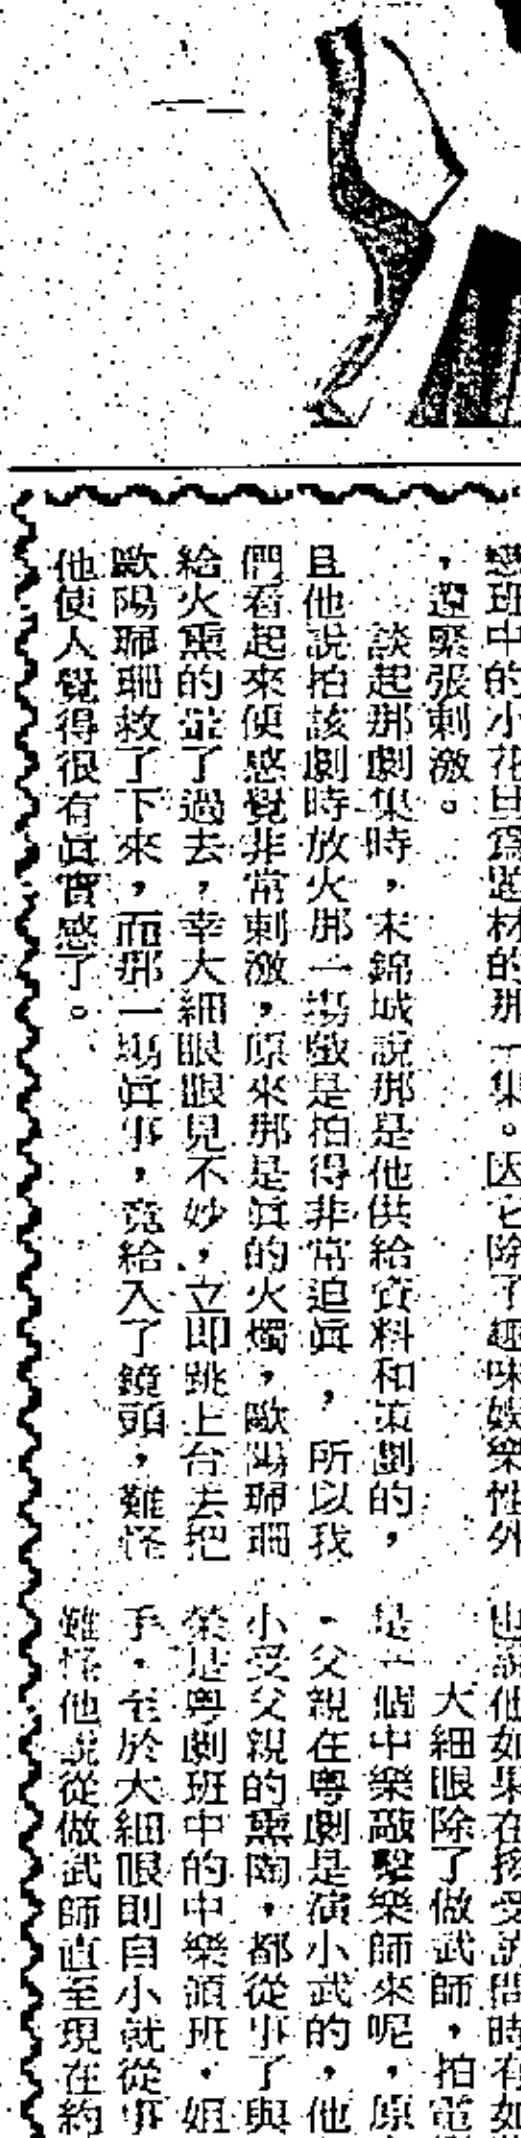 戀班中的小花旦爲題材的那一集。因它除了趣味娛樂性外
，還緊張刺激。
談起那劇集時，朱錦城說那是他供給資料和策劃的，
且他說拍該劇時放火那一場戲是拍得非常迫眞，所以我
們看起來便感覺非常刺激，原來那是眞的火燭，歐陽珮珊
給火熏的暈了過去，幸大細眼眼見不妙，立即跳上台去把
歐陽珮珊救了下來，而那一場眞事，竟給入了鏡頭，難怪
他使人覺得很有眞實感了。
也說他如果在接受訪問時有如
大細眼除了做武師，拍電
是一個中樂敲擊樂師來呢，原
，父親在粵劇是演小武的，他
小受父親的熏陶，都從事了與
榮是粵劇班中的中樂領班，姐
手，至於大細眼則自小就從事
難怪他說從做武師直至現在約